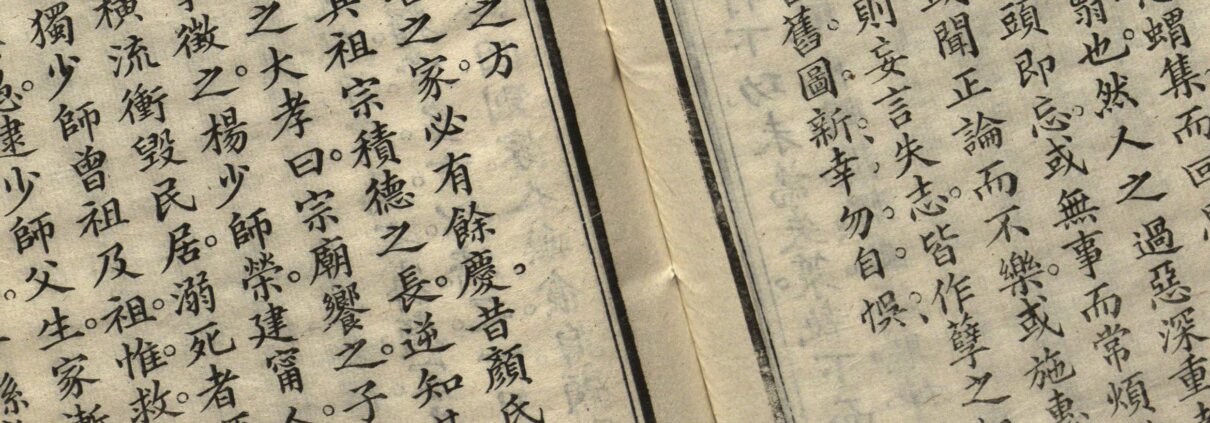 蝟集而回
翳也。然人之過惡深重
頭即忘。或無事而常煩
或聞正論而不樂。或施惠
則妄言失志。皆作孽之
舊圖新。幸勿自悞。
之方
之家必有餘慶。昔顏氏
其祖宗積德之長。逆知
之大孝。曰。宗廟饗之。子
徵之。楊少師榮。建甯
橫流衝毀民居。溺死者
獨少師曾祖及祖。惟救
逮少師父生。家漸